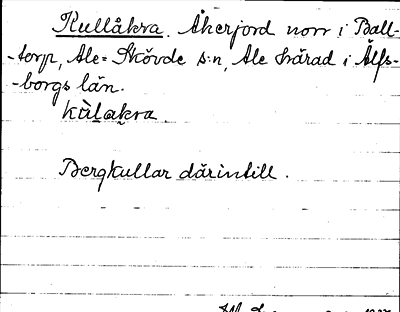 Kullåkra. Åkerjord norr i Ball-
-torp, Ale-Skövde s:n, Ale härad i Älfs-
-borgs län.
kùlakra
Bergkullar därintill.